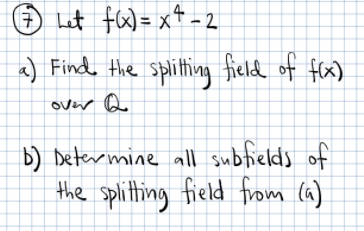 ⑦ Let f(x) = x⁴ - 2
a) Find the splitting field of f(x)
over ℚ
b) Determine all subfields of
the splitting field from (a)